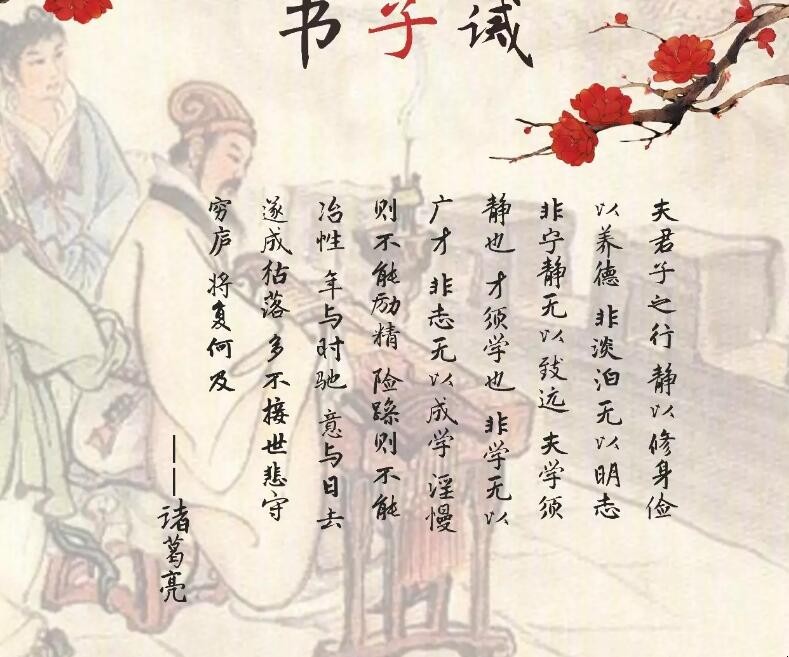 诫子书
夫君子之行 静以修身俭
以养德 非淡泊无以明志
非宁静无以致远 夫学须
静也 才须学也 非学无以
广才 非志无以成学 淫慢
则不能励精 险躁则不能
冶性 年与时驰 意与日去
遂成枯落 多不接世悲守
穷庐 将复何及
——诸葛亮